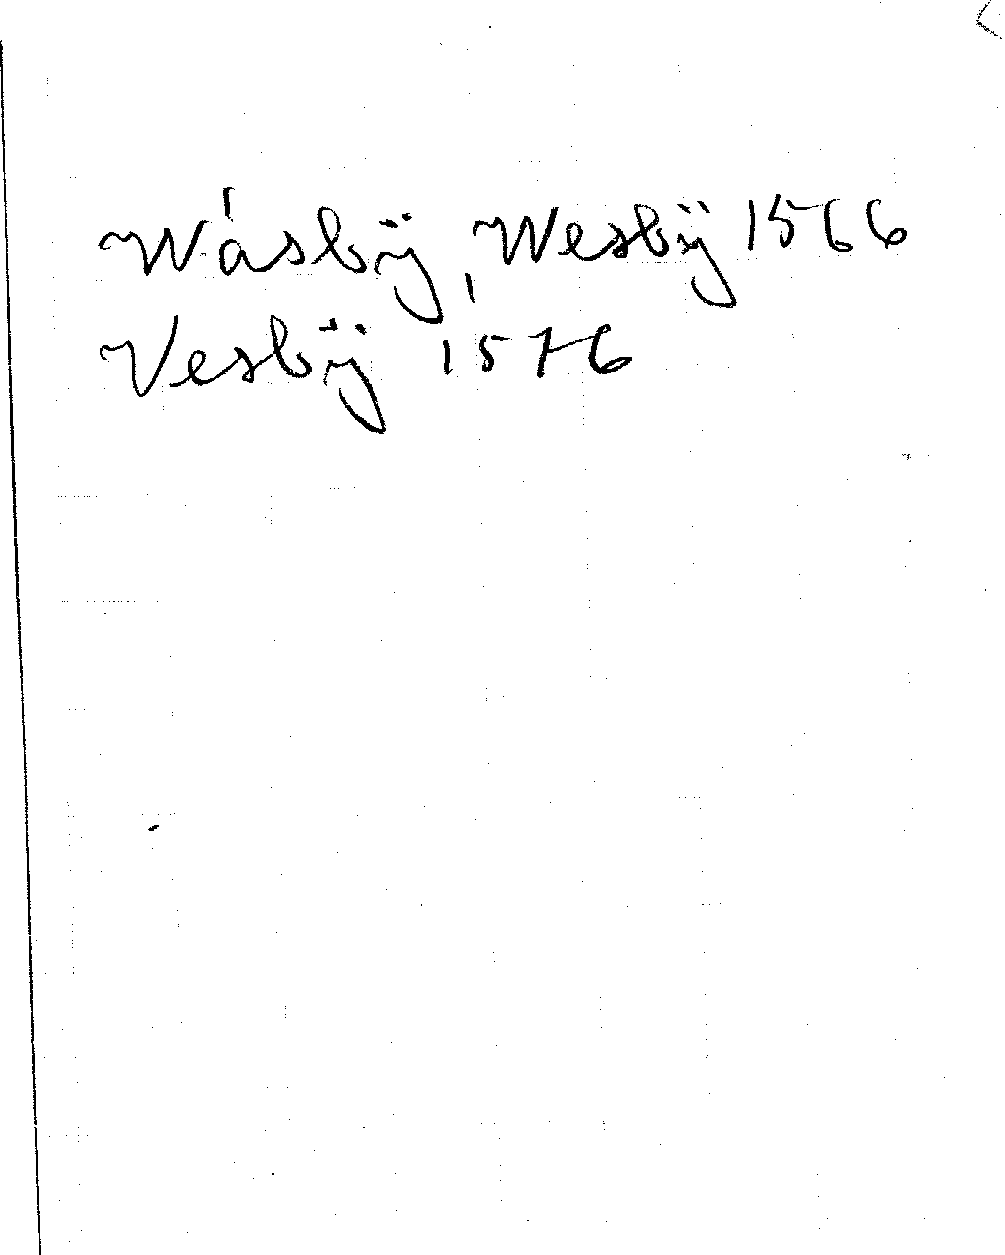 Wásbÿ, Wesbÿ 1566
Vesbÿ 1576